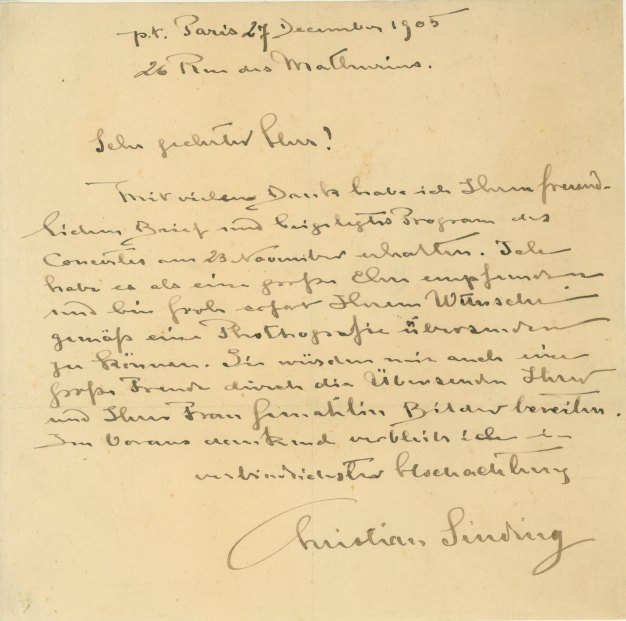 p.t. Paris 27 December 1905
26 Rue des Mathurins.
Sehr geehrter Herr!
Mit vielem Dank habe ich Ihren freund-
lichen Brief und beigelegtes Program des
Concertes am 23 November erhalten. Ich
habe es als eine große Ehre empfunden
und bin froh sofort Ihrem Wunsche
gemäß eine Photografie übersenden
zu können. Sie würden mir auch eine
große Freude durch die Übersenden Ihrer
und Ihrer Frau Gemahlin Bilder bereiten.
Im Voraus dankend verbleibe ich in
verbindlichster Hochachtung
Christian Sinding